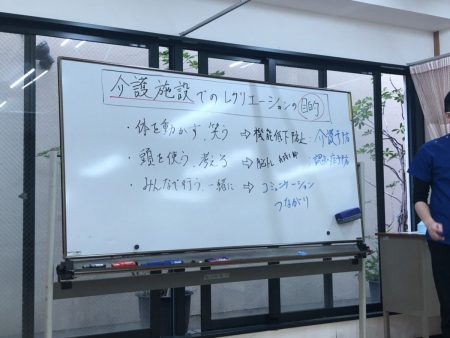 介護施設でのレクリエーションの目的
・体を動かす、笑う ⇒ 機能低下防止 介護予防
・頭を使う、考える ⇒
・みんなで行う、一緒に ⇒ コミュニケーション
つながり